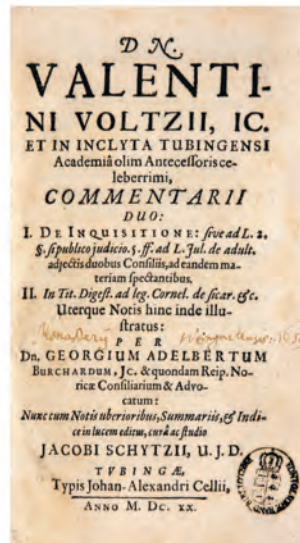 D N.
VALENTI-
NI VOLTZII, IC.
ET IN INCLYTA TUBINGENSI
Academiâ olim Antecessoris ce-
leberrimi,
COMMENTARII
DUO:
I. DE INQUISITIONE: sive ad L. 2.
§. si publico judicio. 5. ff. ad L. Jul. de adult.
adjectis duobus Consiliis, ad eandem ma-
teriam spectantibus.
II. In Tit. Digest. ad leg. Cornel. de sicar. &c.
Uterque Notis hinc inde illu-
stratus:
PER
Dn. GEORGIUM ADELBERTUM
BURCHARDUM, Jc. & quondam Reip. No-
ricæ Consiliarium & Advo-
catum:
Nunc cum Notis uberioribus, Summariis, & Indi-
ce in lucem editus, curâ ac studio
JACOBI SCHYTZII, U. J. D.
TVBINGÆ,
Typis Johan-Alexandri Cellii,
ANNO M. DC. XX.